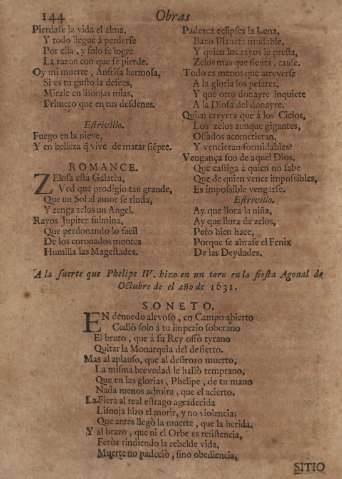 144 Obras
Pierdase la vida el alma,
Y todo llegue à perderse
Por ella, y solo se logre
La razon con que se pierde.
Oy mi muerte, Anfrisa hermosa,
Si es tu gusto la desees,
Mirale en lisonjas mias,
Primero que en tus desdenes.
Estrivillo.
Fuego en la nieve,
Y en belleza q̃ vive de matar siẽpre.
ROMANCE.
Zelosa esta Galatea,
Ved que prodigio tan grande,
Que un Sol al amor se rinda,
Y tenga zelos un Angel.
Rayos Jupiter fulmina,
Que perdonando lo facil
De los coronados montes
Humilla las Magestades.
Padezca eclipses la Luna,
Y quien los rayos le presta,
Zelos mas que sienta, cause.
Todo es menos que atreverse
A la gloria los pesares,
Y que otro donayre inquiete
A la Diosa del donayre.
Quien creyera que à los Cielos,
Los zelos aunque gigantes,
Osados acometieran,
Y vencieran formidables?
Vengança son de aquel Dios,
Que castiga à quien no sabe
Que de quien vence impossibles,
Es impossible vengarse.
Estrivillo.
Ay que llora la niña,
Ay que llora de zelos,
Pero bien hace,
Porque se abrase el Fenix
De las Deydades.
A la suerte que Phelipe IV. hizo en un toro en la fiesta Agonal de
Octubre de el año de 1631.
SONETO.
EN denuedo alevoso, en Campo abierto
solo à tu imperio soberano
El bruto, que à su Rey osso tyrano
Quitar la Monarquia del desierto.
Mas al aplauso, que al destrozo muerto,
La misma brevedad le hallò temprano,
Que en las glorias, Phelipe, de tu mano
Nada menos admira, que el acierto.
La Fiera al real estrago agradecida
Lisonja hizo el morir, y no violencia;
Que antes llegò la muerte, que la herida.
Y al brazo, que ni el Orbe es resistencia,
Feròs rindiendo la rebelde vida,
Muerte no padeciò, sino obediencia,
SITIO